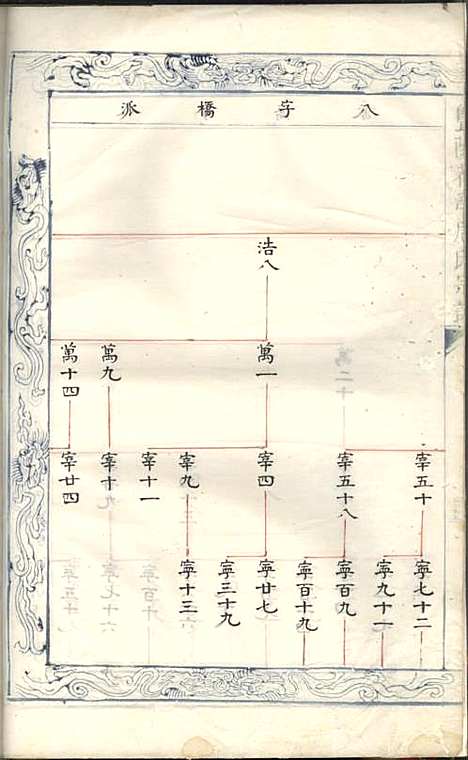 八字橋派
浩八
萬一
萬九
萬十四
宰五十
宰五十八
宰四
宰九
宰十一
宰十九
宰廿四
寧七十二
寧九十一
寧百九
寧百十九
寧廿七
寧三十九
寧十三